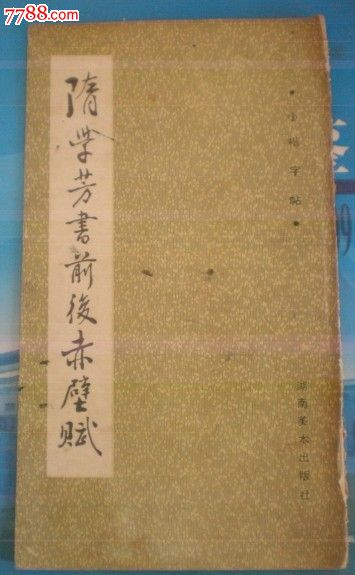 7788.com
隋学芳書前後赤壁賦
小楷字帖
湖南美术出版社
09